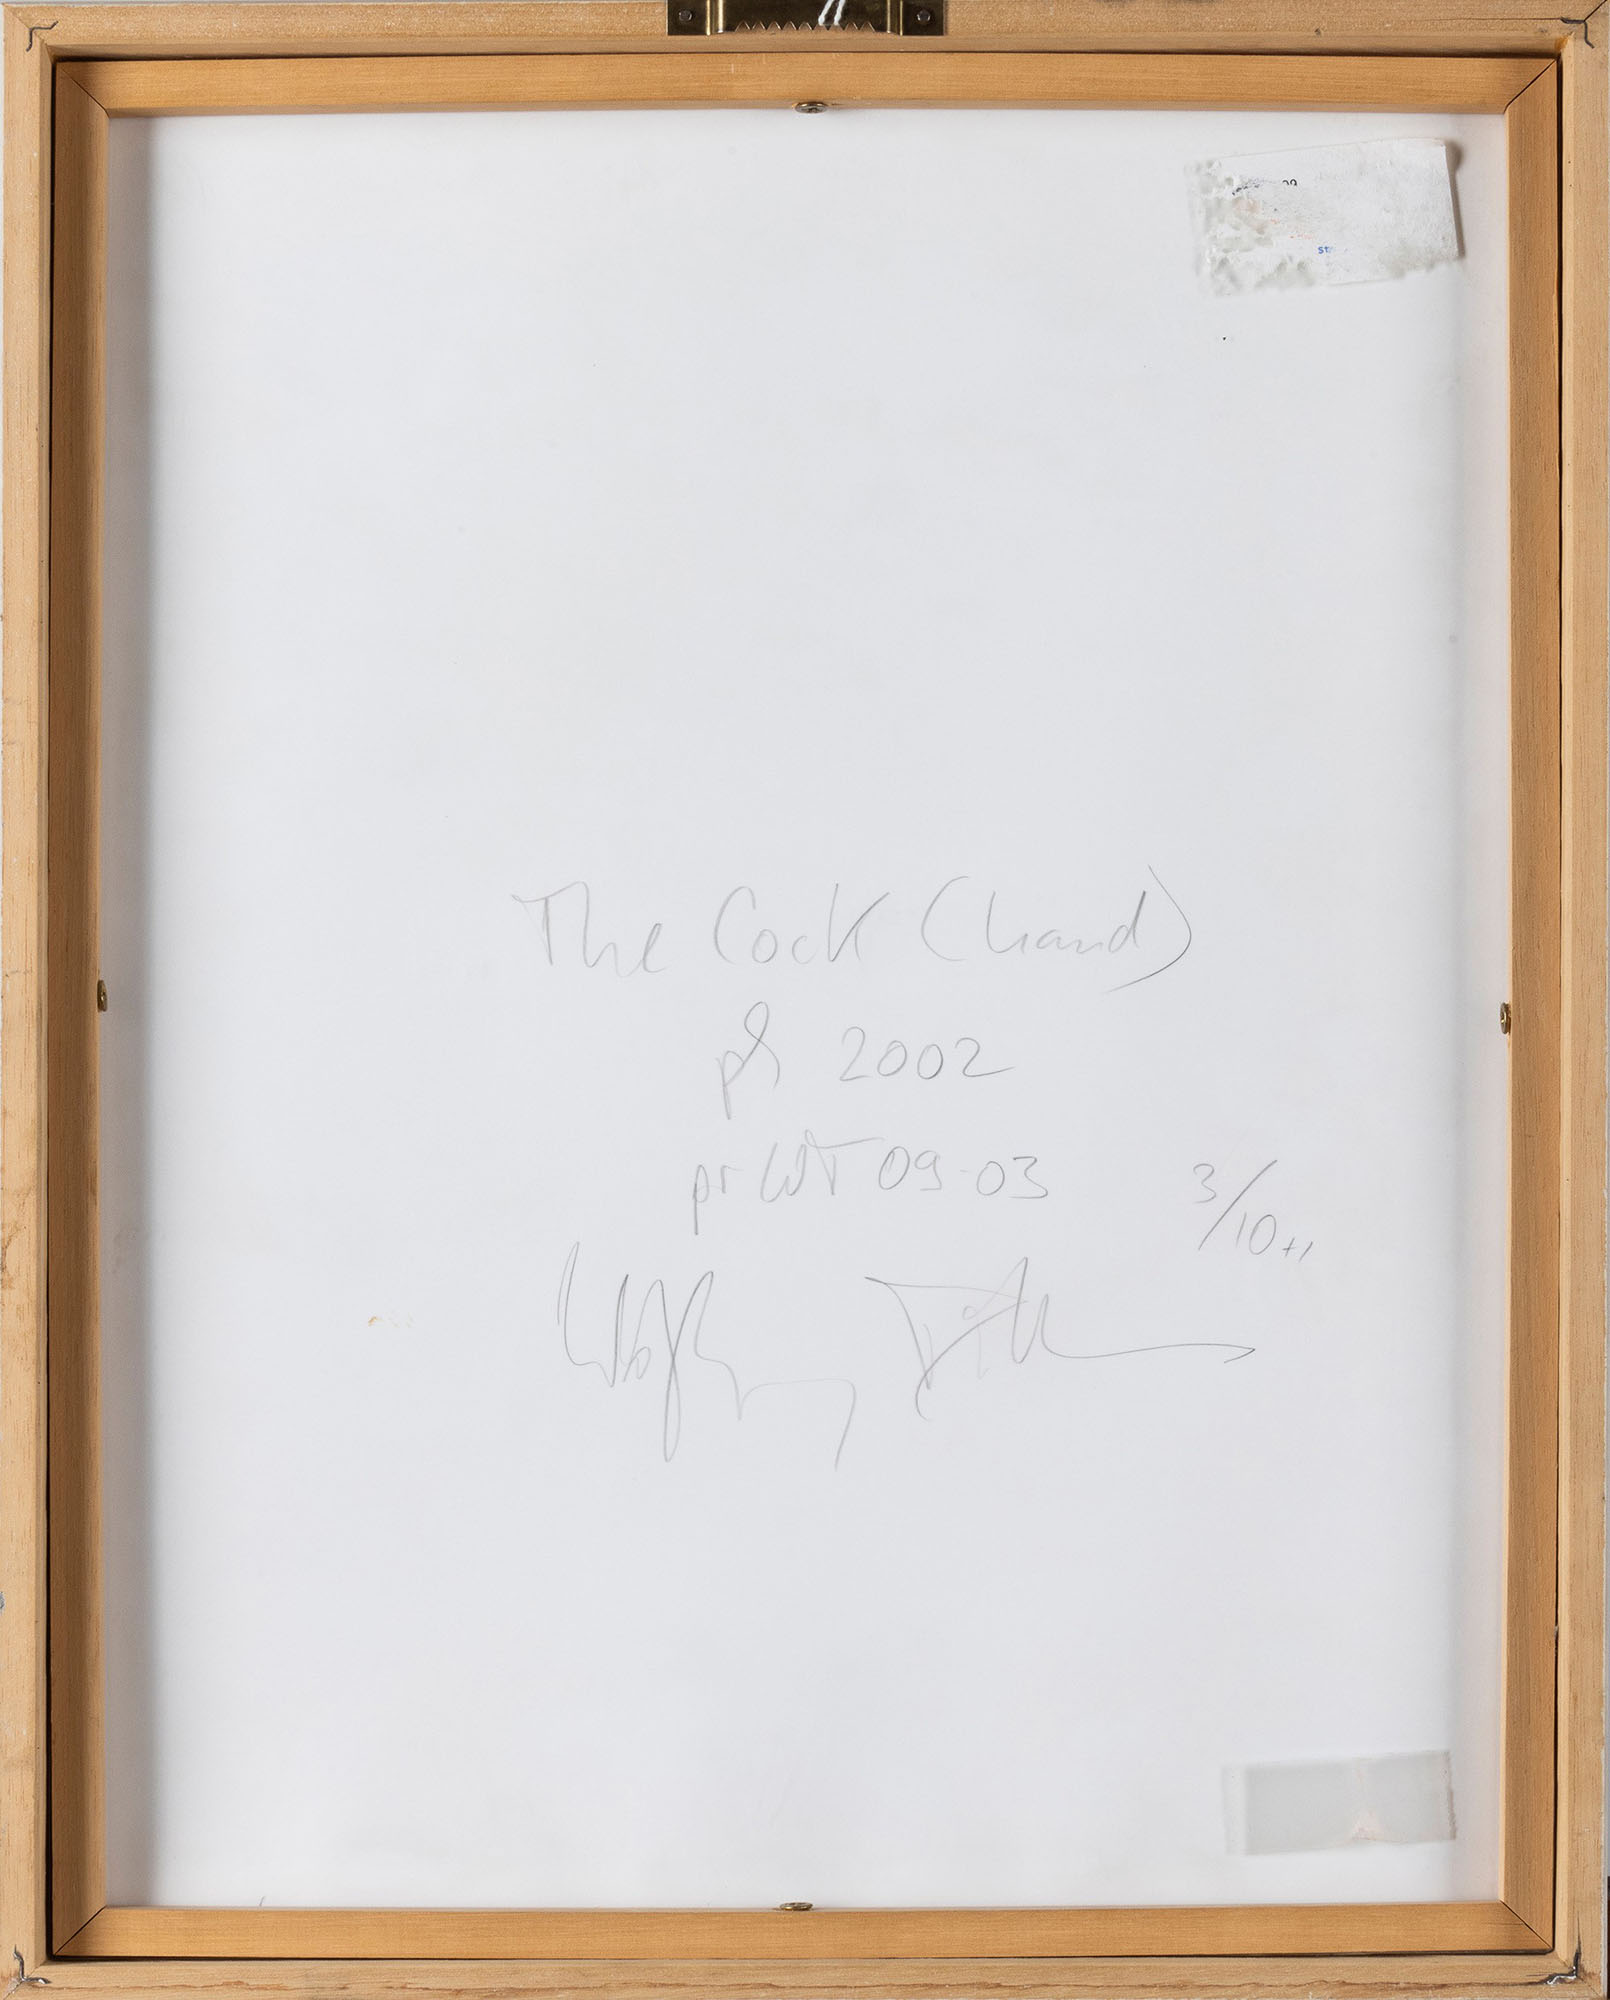 The Cock (hand)
ph 2002
pr WT 09-03 3/10+1
Wolfgang Tillmans